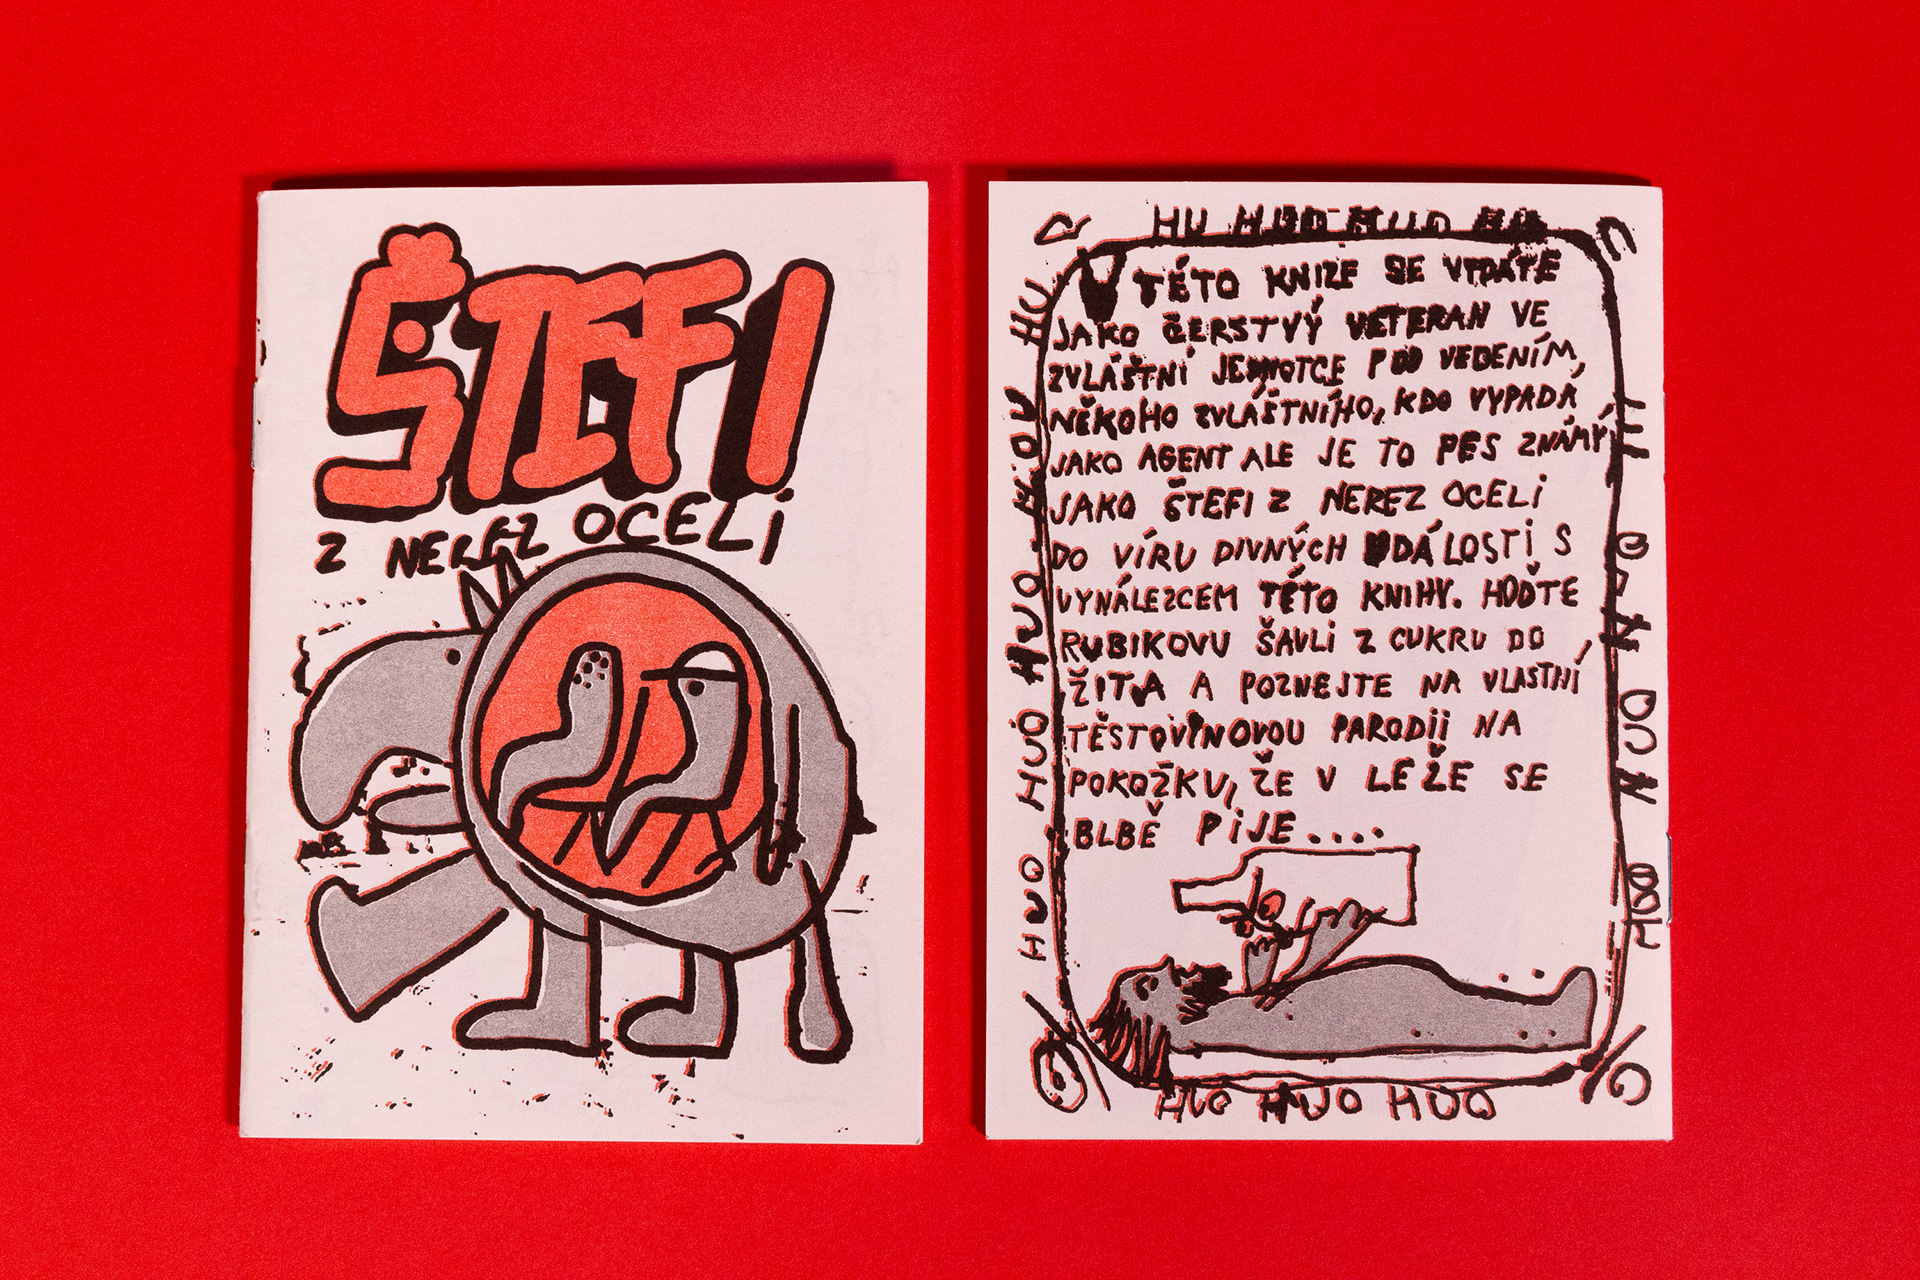 ŠTEFI
Z NEREZ OCELI
HU HUO HUO HU
V TÉTO KNIZE SE VYDÁTE
JAKO ČERSTVÝ VETERAN VE
ZVLÁŠTNÍ JEDNOTCE POD VEDENÍM,
NĚKOHO ZVLÁŠTNÍHO, KDO VYPADÁ
JAKO AGENT ALE JE TO PES ZNÁMÝ
JAKO ŠTEFI Z NEREZ OCELI
DO VÍRU DIVNÝCH UDÁLOSTI S
VYNÁLEZCEM TÉTO KNIHY. HOĎTE
RUBIKOVU ŠAVLI Z CUKRU DO
ŽITA A POZNEJTE NA VLASTNÍ
TĚSTOVINOVOU PARODII NA
POKOŽKU, ŽE V LEŽE SE
BLBĚ PIJE....
HUO HUO HUO
HUO HUO HUO HUO HUO HU